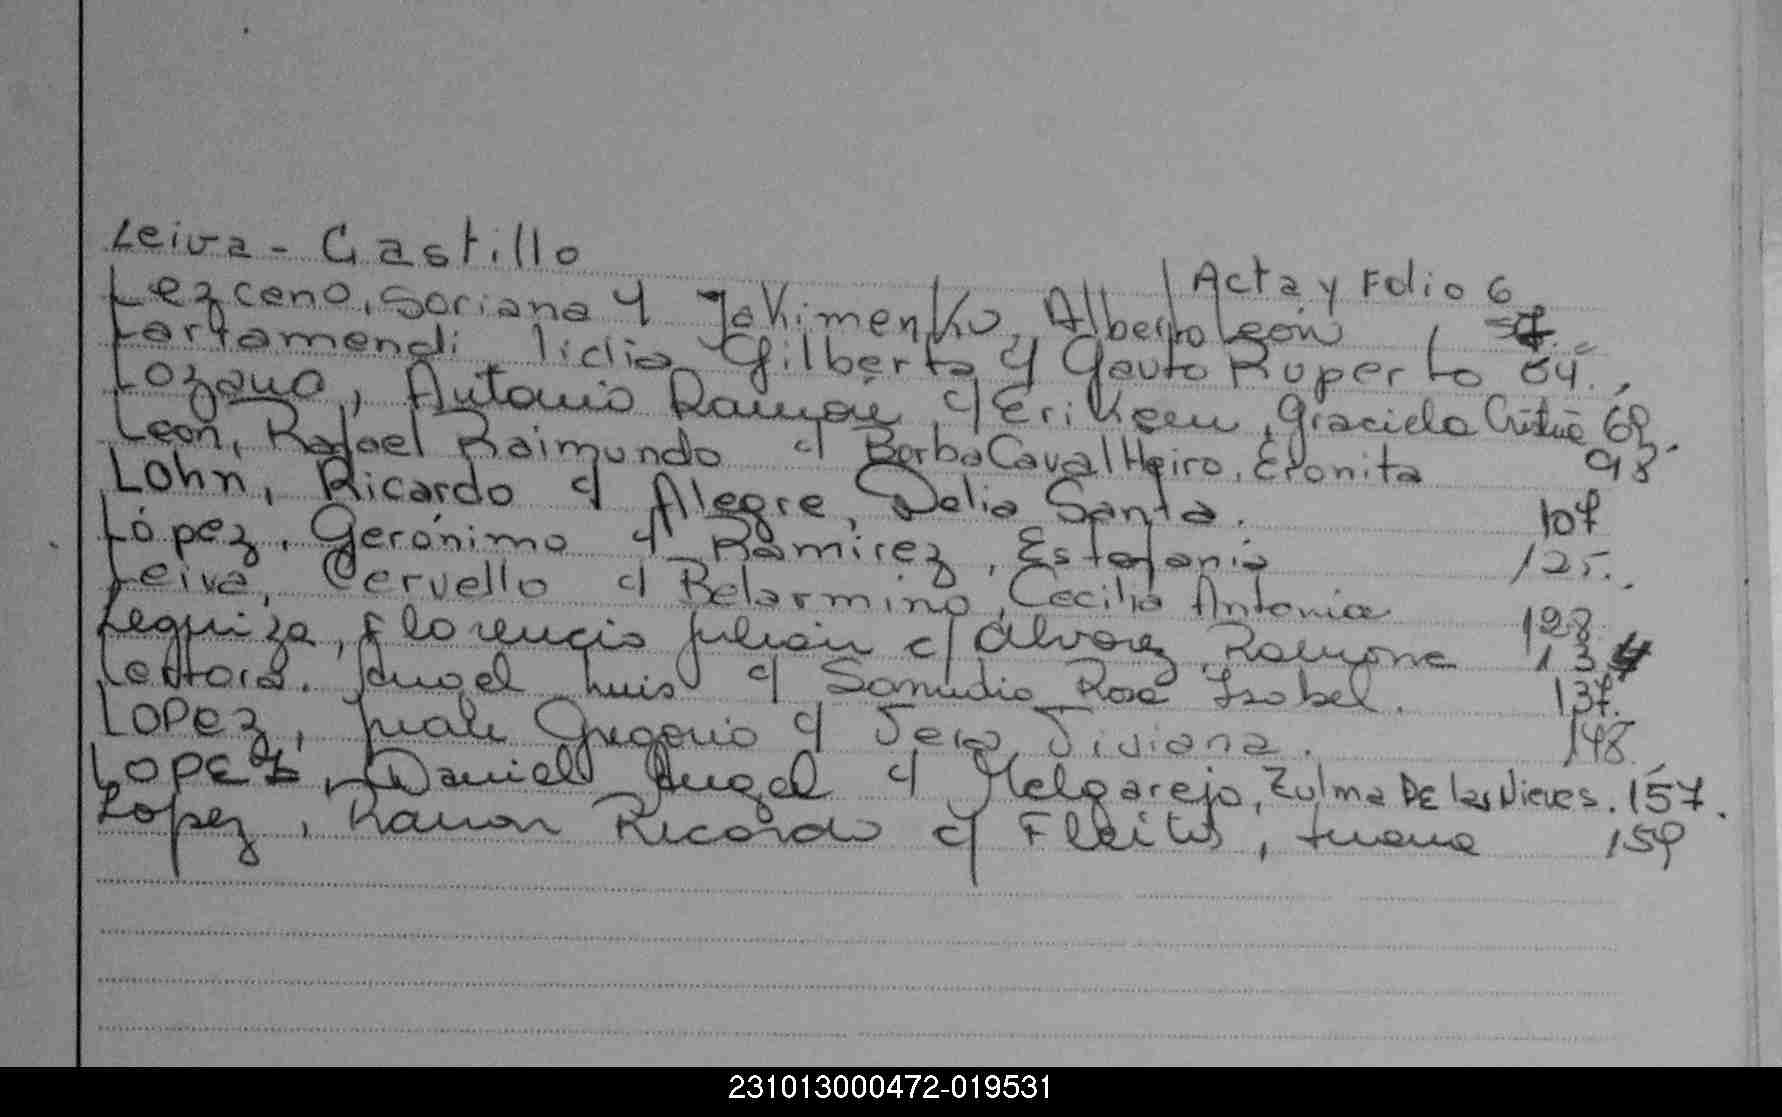 Leiva - Castillo Acta y Folio 6
Lezceno, Soriana y JaKimenKo, Alberto León 57.
Lartamendi lidia Gilberta c/ Gauto Ruperto 64.
Lozano, Antonio Ramón c/ EriKsen, Graciela 69.
León, Rafael Raimundo c/ BorbaCavalHeiro, Eronita 98
Lohn, Ricardo c/ Alegre, Delia Santa. 107
López, Gerónimo c/ Ramirez, Estefania 125.
Leiva, Cervello c/ Belarmino, Cecilia Antonia 128
Leguiza, Florencio Julián c/ Alvarez Ramona 134
Angel Luis c/ Samudio Rosa Isabel. 137.
LOPEZ, Juan Gregorio c/ Viviana. 148
LOPEZ, Daniel Angel c/ Melgarejo, Zulma DE las Nieves. 157.
Lopez, Ramon Ricardo c/ Fleitas, 159
231013000472-019531